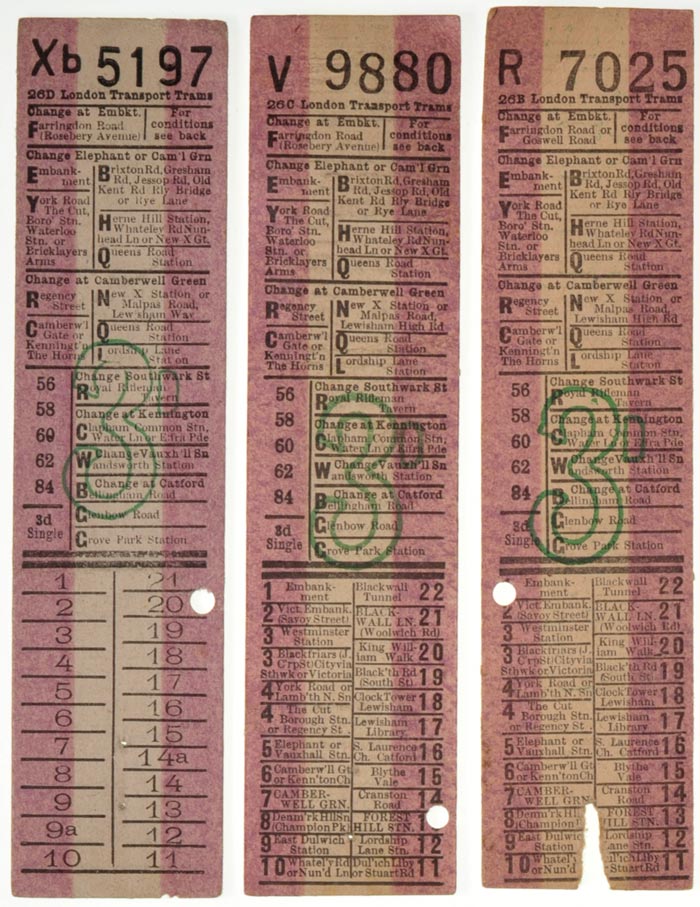 Xb 5197
26D London Transport Trams
Change at Embkt.
Farringdon Road
(Rosebery Avenue)
For
conditions
see back
Change Elephant or Cam'l Grn
Embank-
ment
York Road
The Cut,
Boro' Stn.
Waterloo
Stn. or
Bricklayers
Arms
Brixton Rd, Gresham
Rd, Jessop Rd, Old
Kent Rd Rly Bridge
or Rye Lane
Herne Hill Station,
Whateley Rd Nun-
head Ln or New X Gt.
Queens Road
Station
Change at Camberwell Green
Regency
Street
Camberw'l
Gate or
Kenningt'n
The Horns
New X Station or
Malpas Road,
Lewisham Way
Queens Road
Station
Lordship Lane
Station
56
58
60
62
84
3d
Single
Change Southwark St
Royal Rifleman
Tavern
Change at Kennington
Clapham Common Stn,
Water Ln or Effra Pde
Change Vauxh'll Sn
Wandsworth Station
Change at Catford
Bellingham Road
Glenbow Road
Grove Park Station
3
1 21
2 20
3 19
4 18
5 17
6 16
7 15
8 14a
9 14
9a 13
10 12
11
V 9880
26C London Transport Trams
Change at Embkt.
Farringdon Road
(Rosebery Avenue)
For
conditions
see back
Change Elephant or Cam'l Grn
Embank-
ment
York Road
The Cut,
Boro' Stn.
Waterloo
Stn. or
Bricklayers
Arms
Brixton Rd, Gresham
Rd, Jessop Rd, Old
Kent Rd Rly Bridge
or Rye Lane
Herne Hill Station,
Whateley Rd Nun-
head Ln or New X Gt.
Queens Road
Station
Change at Camberwell Green
Regency
Street
Camberw'l
Gate or
Kenningt'n
The Horns
New X Station or
Malpas Road,
Lewisham High Rd
Queens Road
Station
Lordship Lane
56
58
60
62
84
3d
Single
Change Southwark St
Royal Rifleman
Tavern
Change at Kennington
Clapham Common Stn,
Water Ln or Effra Pde
Change Vauxh'll Sn
Wandsworth Station
Change at Catford
Bellingham Road
Glenbow Road
Grove Park Station
3
1 Embank-
ment
Blackwall
Tunnel 22
2 Vict. Embank.
(Savoy Street)
BLACK-
WALL LN. 21
(Woolwich Rd)
3 Westminster
Station
King Will-
iam Walk 20
3 Blackfriars (J.
C'rp St) City via
Sthwk or Victoria
Black'th Rd 19
(South St)
4 York Road or
Lamb'th N. Sn
Clock Tower 18
Lewisham
4 The Cut
Borough Stn.
or Regency St.
Lewisham 17
Library
5 Elephant or
Vauxhall Stn.
S. Laurence 16
Ch. Catford
6 Camberw'll Gt
or Kenn'ton Ch
Blythe 15
Vale
7 CAMBER-
WELL GRN.
Cranston 14
Road
8 Denm'rk Hll Sn
(Champion Pk)
FOREST
HILL STN.
9 East Dulwich
Station
Lordship 12
Lane Stn.
10 Whatel'y Rd
or Nun'd Ln
Dul'ich Liby 11
or Stuart Rd
R 7025
26B London Transport Trams
Change at Embkt.
Farringdon Road or
Goswell Road
For
conditions
see back
Change Elephant or Cam'l Grn
Embank-
ment
York Road
The Cut,
Boro' Stn.
Waterloo
Stn. or
Bricklayers
Arms
Brixton Rd, Gresham
Rd, Jessop Rd, Old
Kent Rd Rly Bridge
or Rye Lane
Herne Hill Station,
Whateley Rd Nun-
head Ln or New X Gt.
Queens Road
Station
Change at Camberwell Green
Regency
Street
Camberw'l
Gate or
Kenningt'n
The Horns
New X Station or
Malpas Road,
Lewisham High Rd
Queens Road
Station
Lordship Lane
56
58
60
62
84
3d
Single
Change Southwark St
Royal Rifleman
Tavern
Change at Kennington
Clapham Common Stn,
Water Ln or Effra Pde
Change Vauxh'll Sn
Wandsworth Station
Change at Catford
Bellingham Road
Glenbow Road
Grove Park Station
3
Embank-
ment
Blackwall
Tunnel 22
2 Vict. Embank.
(Savoy Street)
BLACK-
WALL LN. 21
(Woolwich Rd)
3 Westminster
Station
King Will-
iam Walk 20
3 Blackfriars (J.
C'rp St) City via
Sthwk or Victoria
Black'th Rd 19
(South St)
4 York Road or
Lamb'th N. Sn
Clock Tower 18
Lewisham
4 The Cut
Borough Stn.
or Regency St.
Lewisham 17
Library
5 Elephant or
Vauxhall Stn.
S. Laurence 16
Ch. Catford
6 Camberw'll Gt
or Kenn'ton Ch
Blythe 15
Vale
7 CAMBER-
WELL GRN
Cranston 14
Road
8 Denm'rk
(Champion
FOREST 13
HILL STN.
9 East Dulwic
Station
Lordship 12
Lane Stn.
10 Whatel'
or Nun'd
ul'ich Liby 11
or Stuart Rd